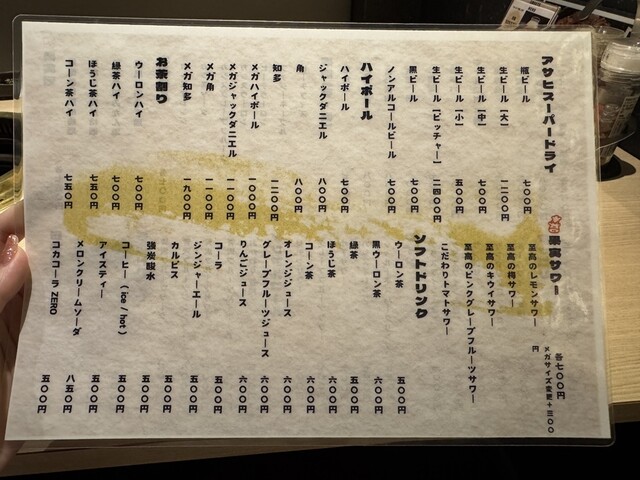 アサヒスーパードライ
瓶ビール 七〇〇円
生ビール [大] 一二〇〇円
生ビール [中] 七〇〇円
生ビール [小] 五〇〇円
生ビール [ピッチャー] 二四〇〇円
黒ビール 七〇〇円
ノンアルコールビール 七〇〇円
ハイボール
ハイボール 七〇〇円
ジャックダニエル 八〇〇円
角 八〇〇円
知多 一二〇〇円
メガハイボール 一〇〇〇円
メガジャックダニエル 一一〇〇円
メガ角 一一〇〇円
メガ知多 一九〇〇円
お茶割り
ウーロンハイ 七〇〇円
緑茶ハイ 七〇〇円
ほうじ茶ハイ 七五〇円
コーン茶ハイ 七五〇円
果実サワー
各七〇〇円
メガサイズ変更+三〇〇円
至高のレモンサワー
至高の梅サワー
至高のキウイサワー
至高のピンクグレープフルーツサワー
こだわりトマトサワー
ソフトドリンク
ウーロン茶 五〇〇円
黒ウーロン茶 六〇〇円
緑茶 五〇〇円
ほうじ茶 六〇〇円
コーン茶 六〇〇円
オレンジジュース 六〇〇円
グレープフルーツジュース 六〇〇円
りんごジュース 六〇〇円
コーラ 五〇〇円
ジンジャーエール 五〇〇円
カルピス 五〇〇円
強炭酸水 五〇〇円
コーヒー (ice / hot) 五〇〇円
アイスティー 五〇〇円
メロンクリームソーダ 八五〇円
コカコーラ ZERO 五〇〇円